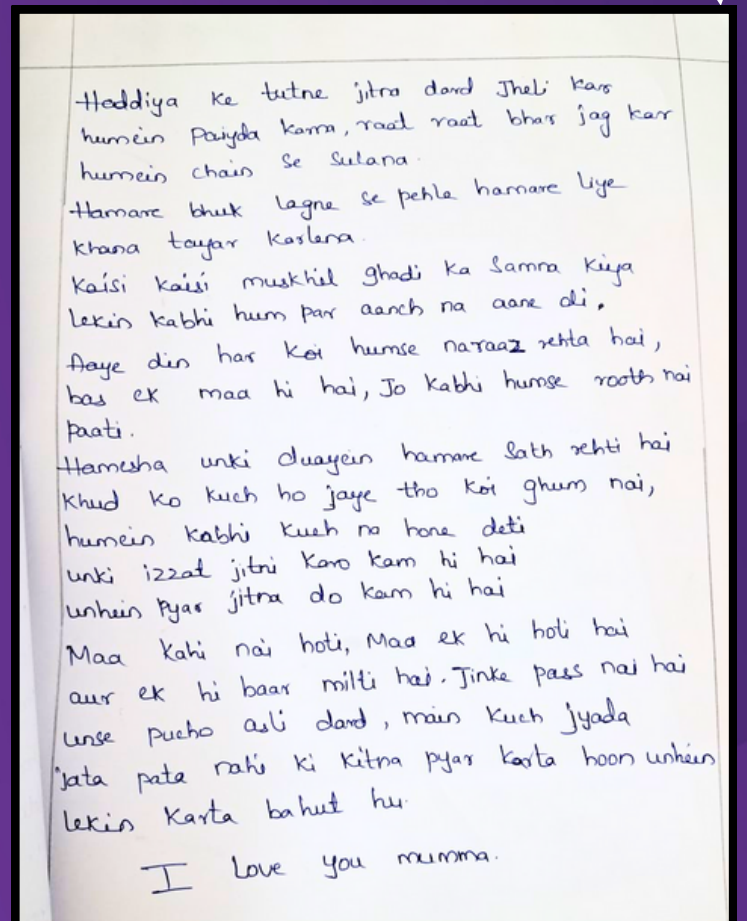 Haddiya ke tutne jitna dard Jheli kar
humein Paiyda karna, raat raat bhar jag kar
humein chain se Sulana.
Hamare bhuk lagne se pehle hamare liye
khana tayar karlena.
Kaisi kaisi muskhil ghadi ka Samna kiya
lekin kabhi hum par aanch na aane di.
Aaye din har koi humse naraaz rehta hai,
bas ek maa hi hai, Jo kabhi humse rooth nai
paati.
Hamesha unki duayein hamare Sath rehti hai
Khud ko kuch ho jaye tho koi ghum nai,
humein kabhi kuch na hone deti
unki izzat jitni karo kam hi hai
unhein pyar jitna do kam hi hai
Maa kahi nai hoti, Maa ek hi hoti hai
aur ek hi baar milti hai. Jinke pass nai hai
unse pucho asli dard, main kuch jyada
jata pata nahi ki kitna pyar karta hoon unhein
lekin karta bahut hu.
I love you mumma.